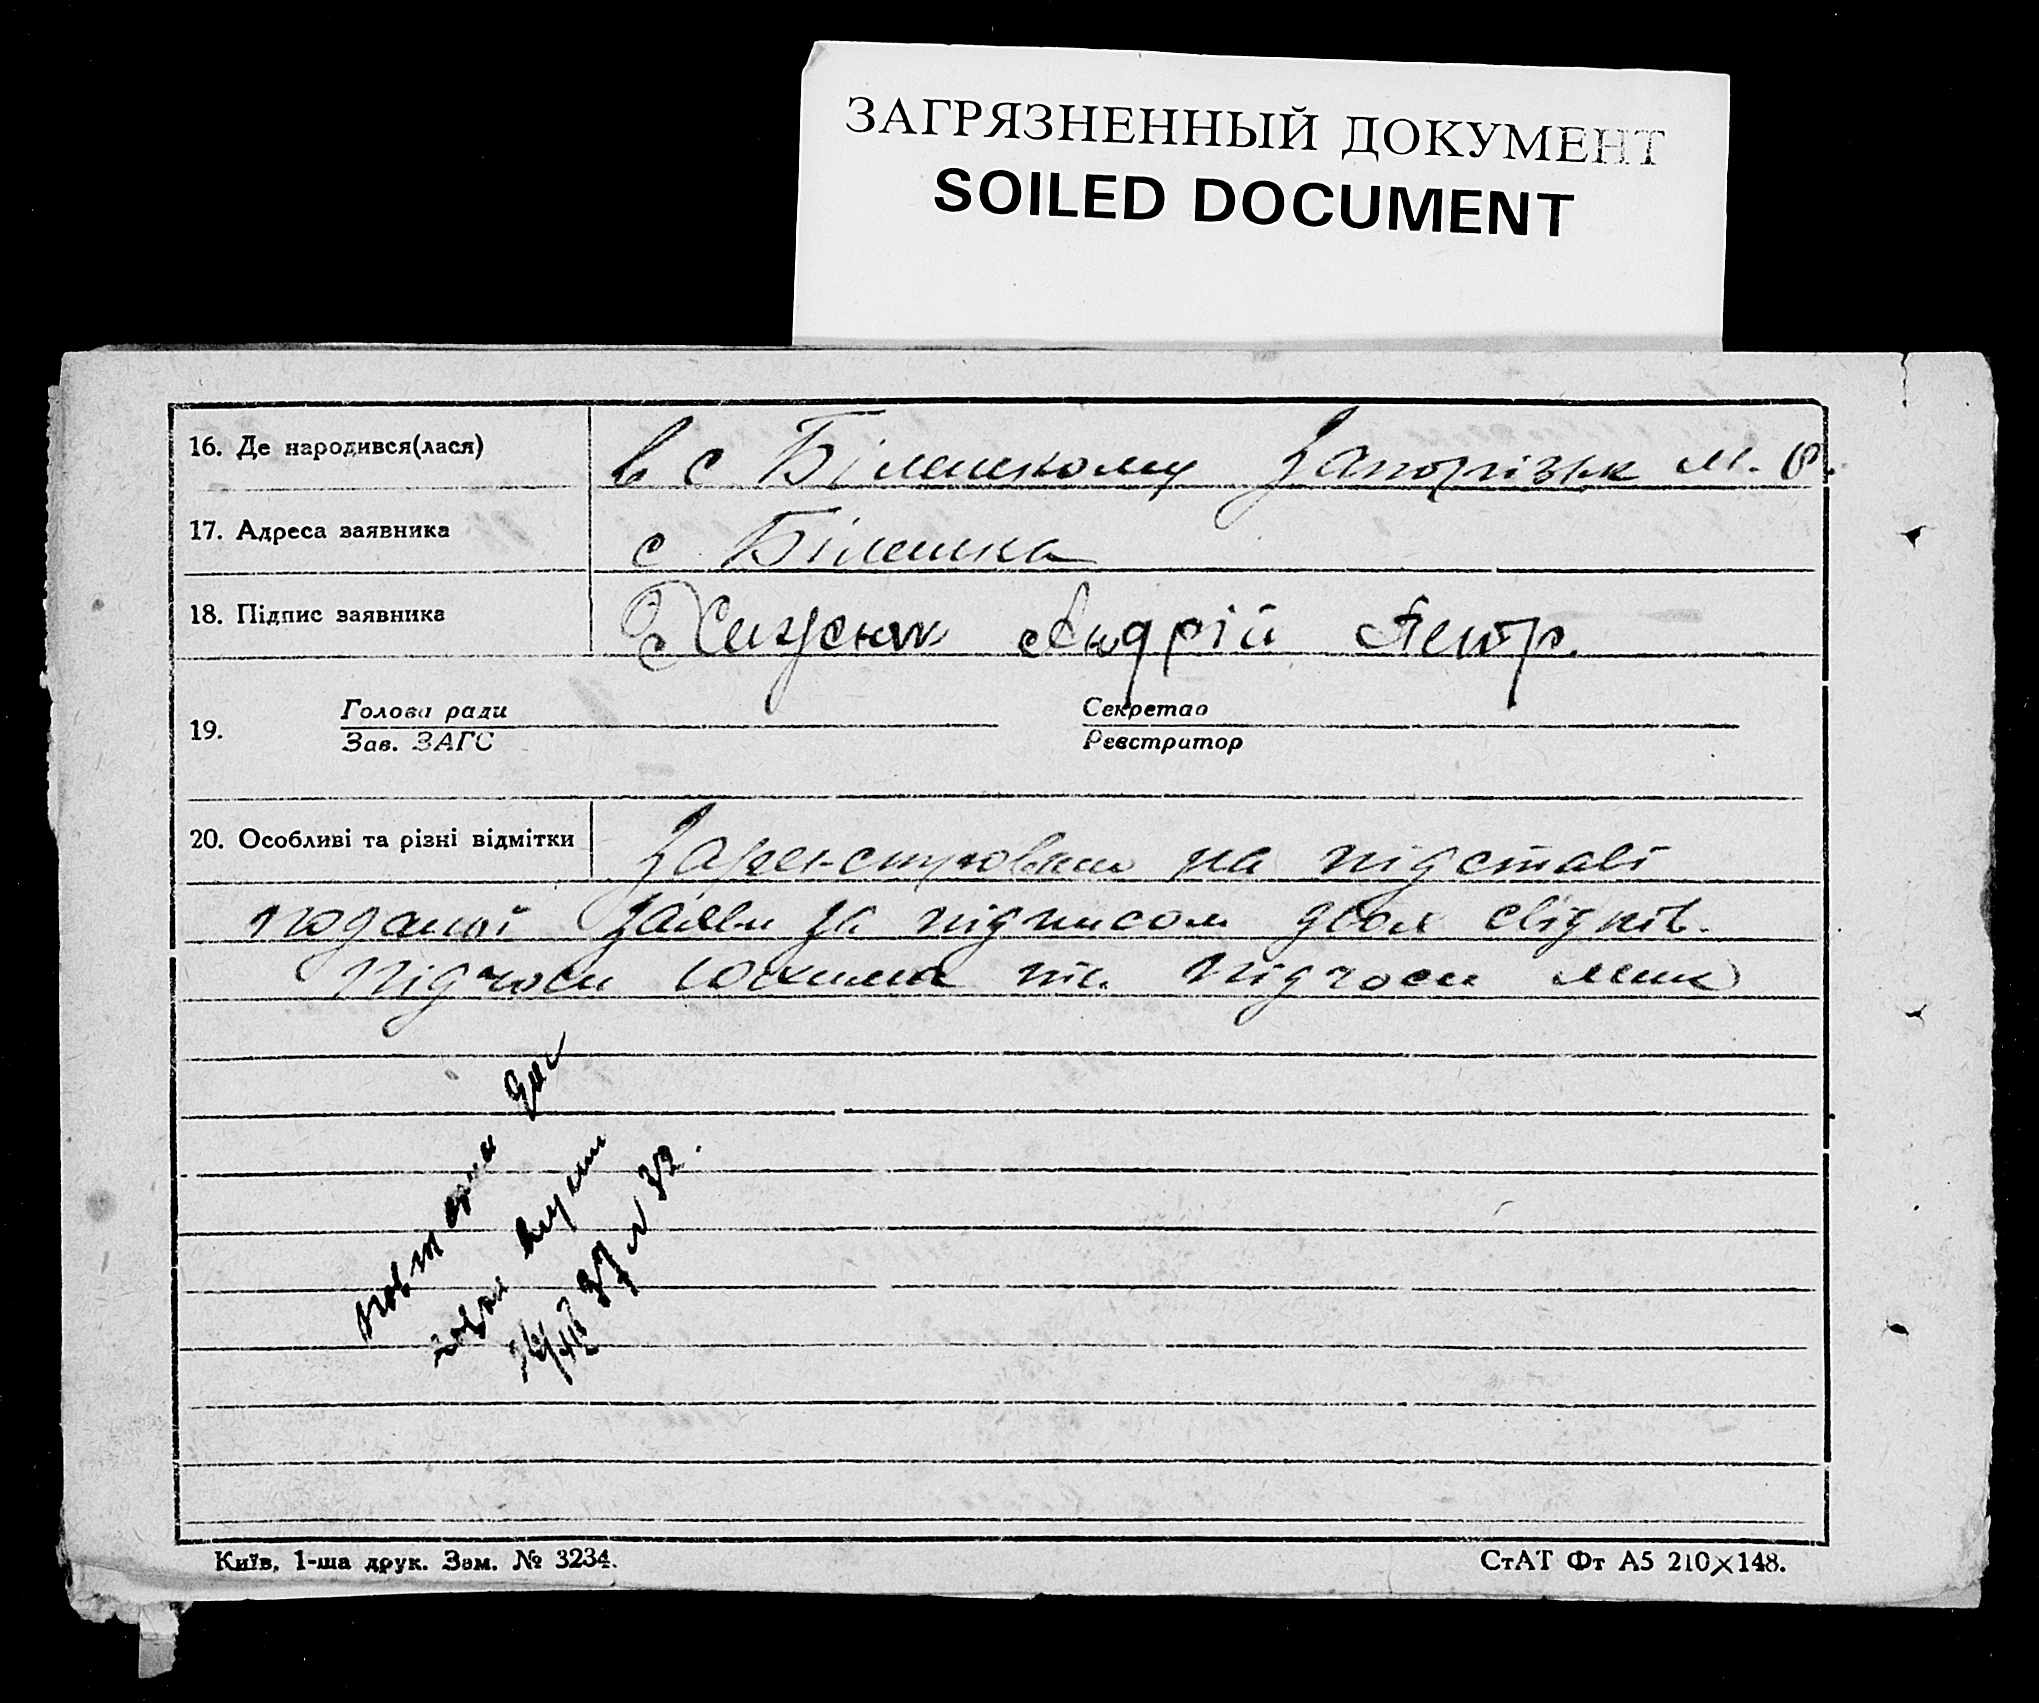 ЗАГРЯЗНЕННЫЙ ДОКУМЕНТ
SOILED DOCUMENT
16. Де народився(лася)
в с Біленькому Запоріжк м. р.
17. Адреса заявника
с Біленьке
18. Підпис заявника
Андрій Петр.
19.
Голова ради
Зав. ЗАГС
Секретар
Реєстратор
20. Особливі та різні відмітки
Зареєстровано на підставі
поданої заяви за підписом двох свідків.
та
37 32.
Київ, 1-ша друк. Зам. № 3234.
СтАТ Фт А5 210×148.